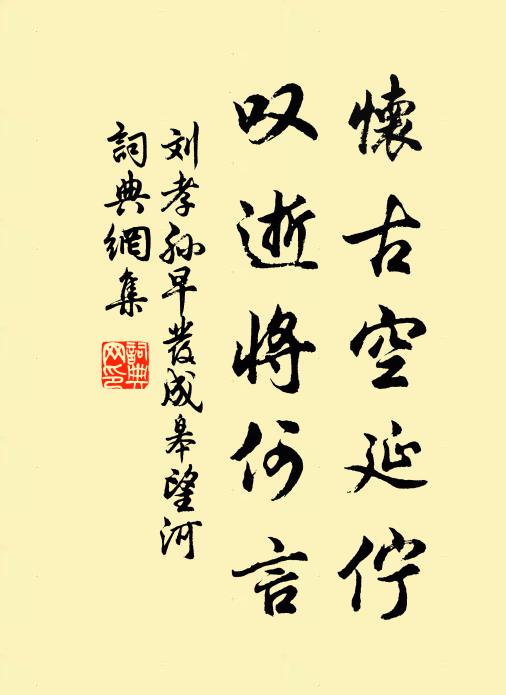 懷古空延佇
叹逝將何言
刘孝孙早發成皋望河
詞典網集
詞典网印